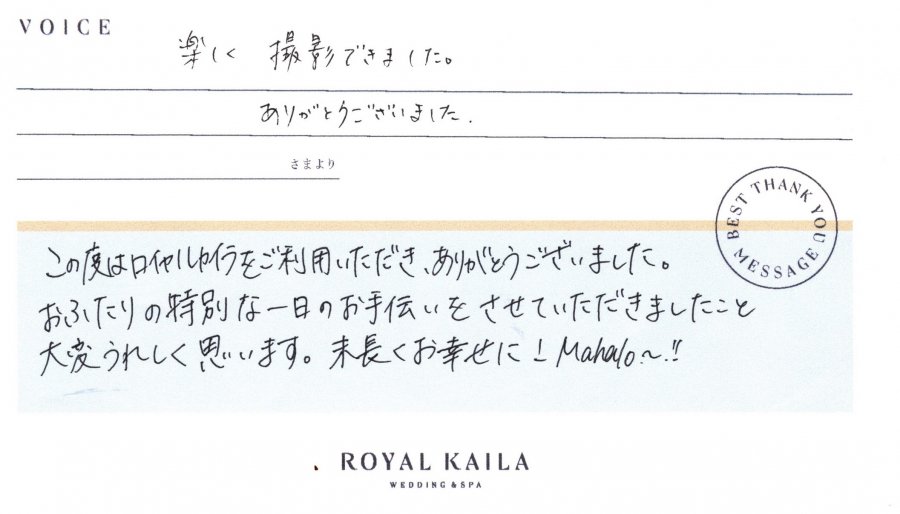 VOICE
楽しく 撮影できました。
ありがとうございました.
さまより
BEST THANK YOU MESSAGE
この度はロイヤルカイラをご利用いただき、ありがとうございました。
おふたりの特別な一日のお手伝いをさせていただきましたこと
大変うれしく思います。末長くお幸せに！Mahalo〜!!
ROYAL KAILA
WEDDING & SPA